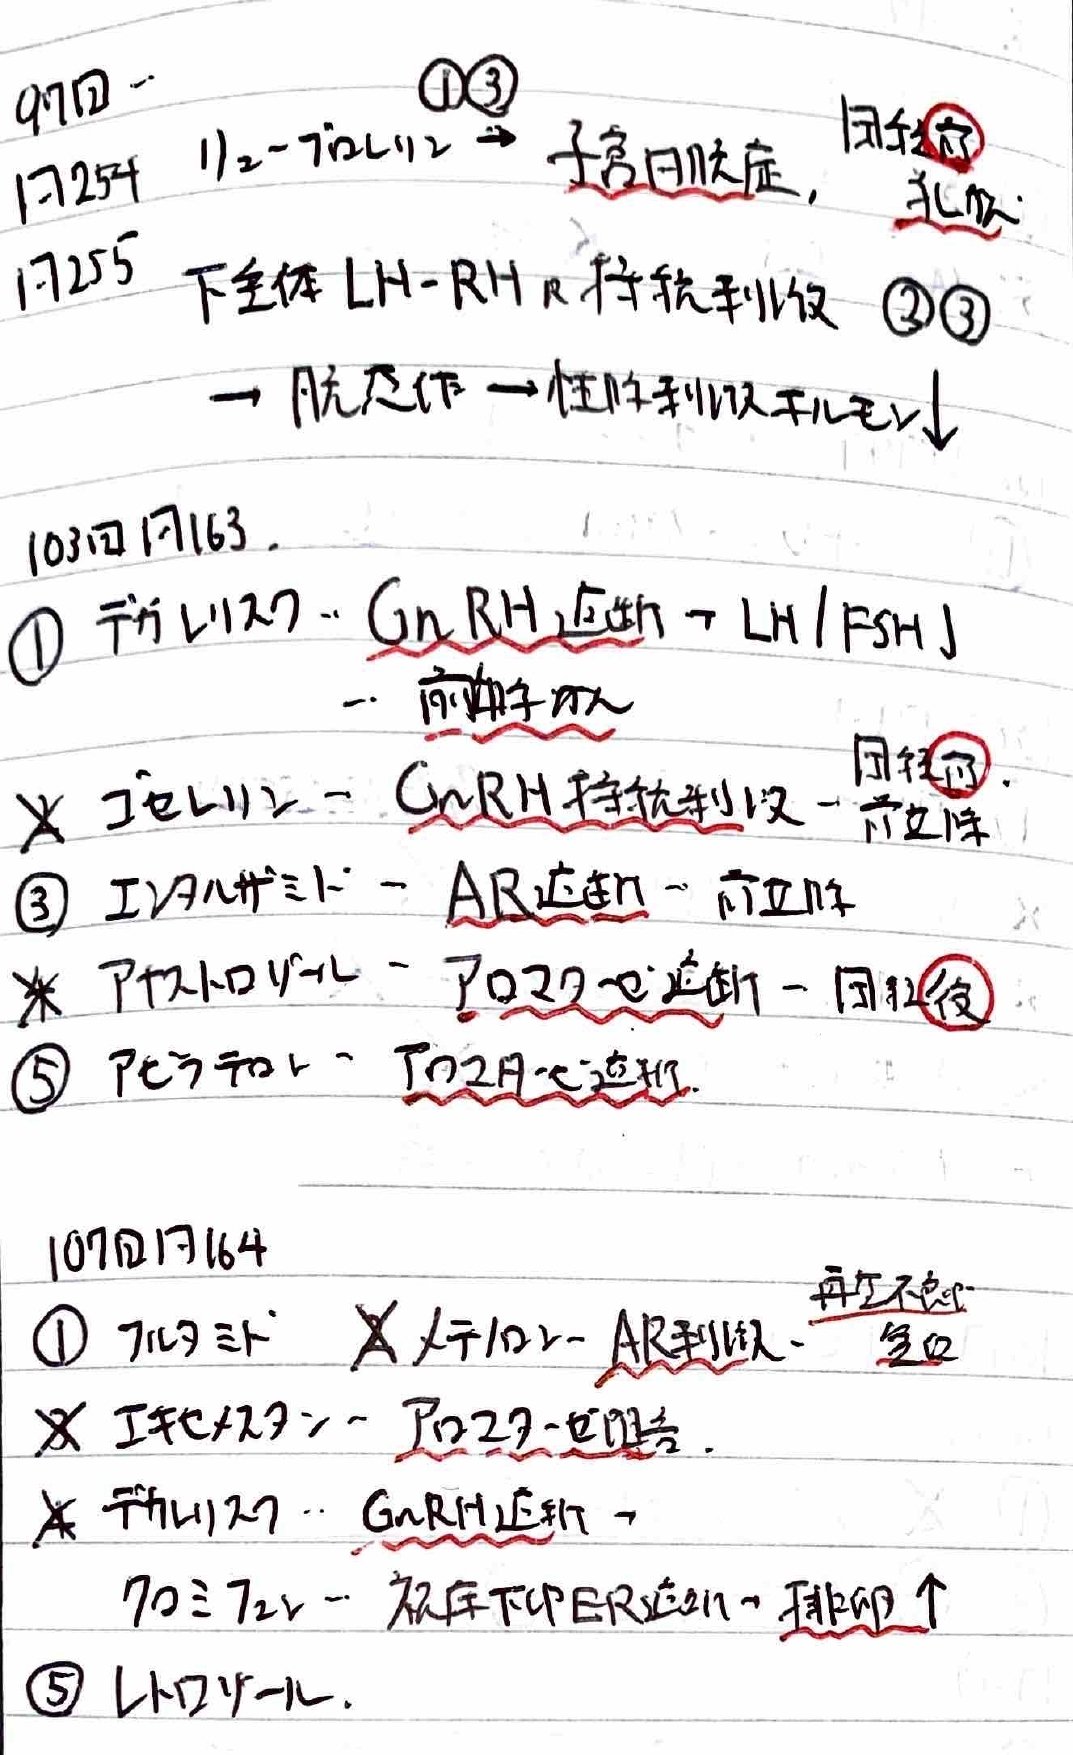 97回 ..
問254 リュープロレリン ①③ → 子宮内膜症, 閉経前 乳がん
問255 下垂体 LH-RH R 持続刺激 ②③
→ 脱感作 → 性腺刺激ホルモン↓
103回 問163.
① デガレリクス ‥ GnRH遮断 → LH/FSH↓
‥ 前立腺がん
× ゴセレリン - GnRH持続刺激 - 閉経前. 前立腺
③ エンザルタミド - AR遮断 - 前立腺
× アナストロゾール - アロマターゼ遮断 - 閉経後
⑤ アビラテロン -
107回 問164
① フルタミド × メテノロン - AR刺激 - 再生不良性 貧血
× エキセメスタン - アロマターゼ阻害.
× デガレリクス ‥ GnRH遮断 →
クロミフェン - 視床下部ER遮断 → 排卵↑
⑤ レトロゾール.